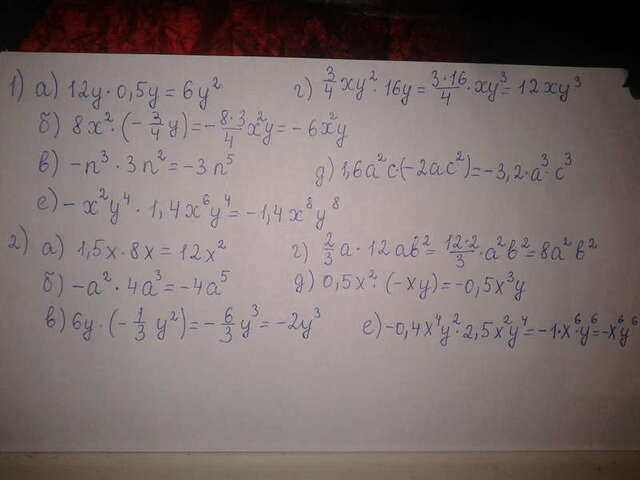 1) а) 12y · 0,5y = 6y²
г) 3/4 xy² · 16y = 3·16/4 · xy³ = 12xy³
б) 8x² · (-3/4 y) = -8·3/4 x²y = -6x²y
в) -n³ · 3n² = -3n⁵
д) 1,6a²c(-2ac²) = -3,2·a³·c³
е) -x²y⁴ · 1,4x⁶y⁴ = -1,4x⁸y⁸
2) а) 1,5x · 8x = 12x²
г) 2/3 a · 12ab² = 12·2/3 · a²b² = 8a²b²
б) -a² · 4a³ = -4a⁵
д) 0,5x² · (-xy) = -0,5x³y
в) 6y · (-1/3 y²) = -6/3 y³ = -2y³
е) -0,4x⁴y² · 2,5x²y⁴ = -1·x⁶·y⁶ = -x⁶y⁶